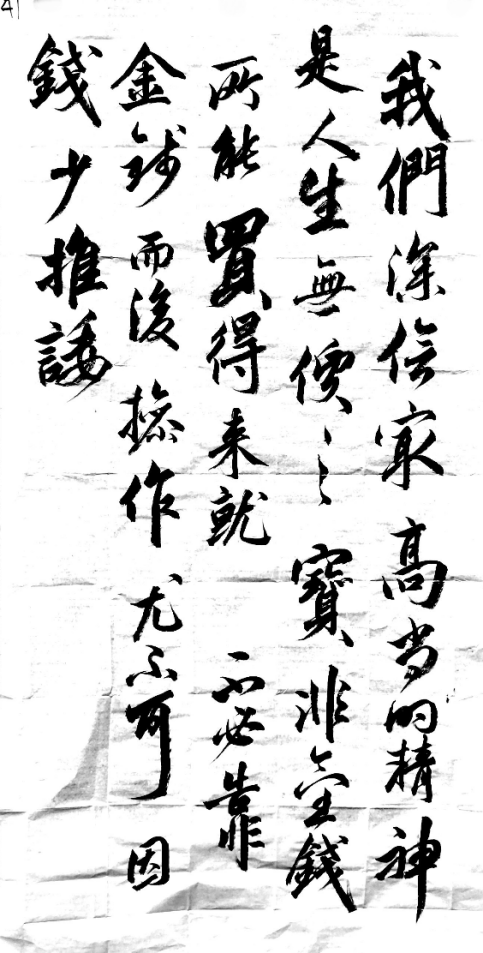 41
我們深信最高尚的精神
是人生無價之寶非金錢
所能買得來就不必靠
金錢而後操作尤不可因
錢少推諉